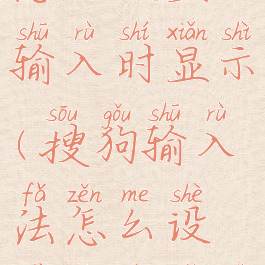 shū rù shí xiǎn shì
输入时显示
sōu gǒu shū rù
(搜狗输入
fǎ zěn me shè
法怎么设